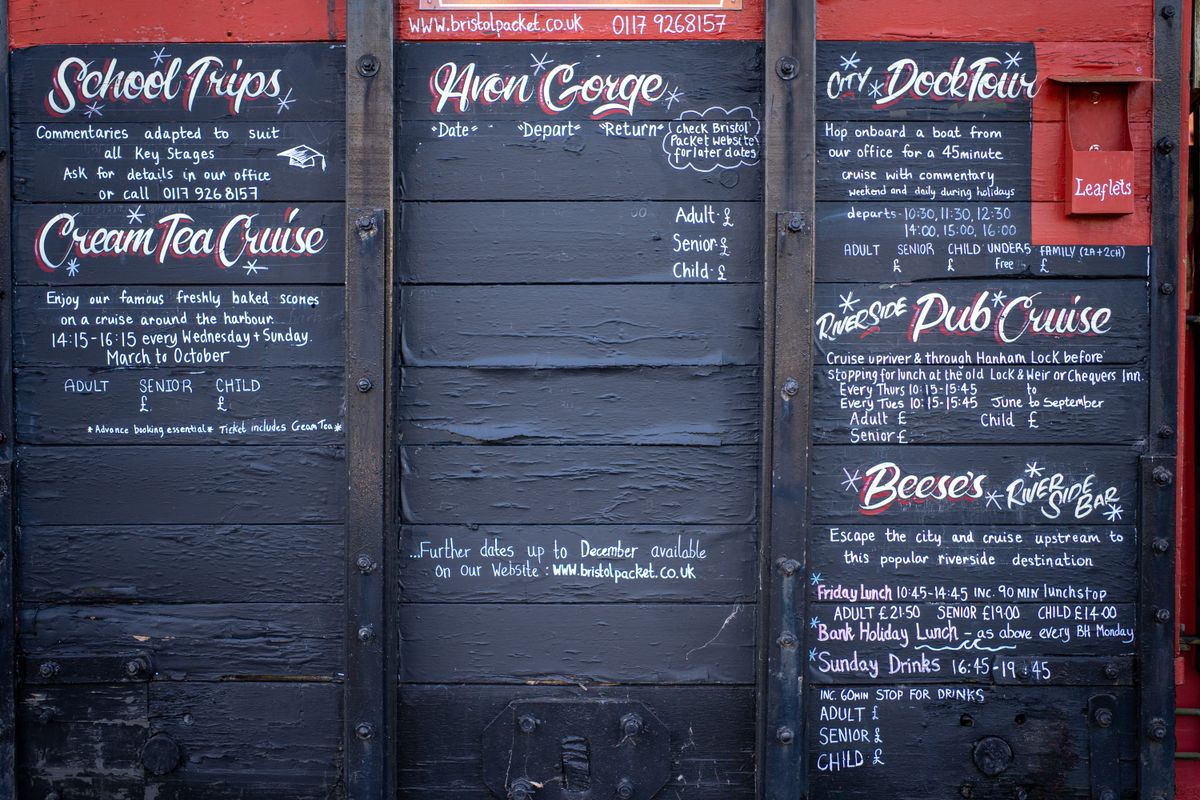 www.bristolpacket.co.uk 0117 9268157
School Trips
Commentaries adapted to suit
all Key Stages
Ask for details in our office
or call 0117 926 8157
Cream Tea Cruise
Enjoy our famous freshly baked scones
on a cruise around the harbour.
14:15-16:15 every Wednesday + Sunday.
March to October
ADULT SENIOR CHILD
£. £.
*Advance booking essential* Ticket includes Cream Tea*
Avon Gorge
"Date" "Depart" "Return"
check Bristol
Packet website
for later dates
Adult £
Senior £
Child £
...Further dates up to December available
on our Website : www.bristolpacket.co.uk
CITY Dock Tour
Hop onboard a boat from
our office for a 45minute
cruise with commentary
weekend and daily during holidays
departs 10:30, 11:30, 12:30
14:00, 15:00, 16:00
ADULT SENIOR CHILD UNDER5 FAMILY (2A+2CH)
£ £ Free £
Leaflets
RIVERSIDE Pub Cruise
Cruise upriver & through Hanham Lock before
stopping for lunch at the old Lock & Weir or Chequers Inn.
Every Thurs 10:15-15:45 to
Every Tues 10:15-15:45 June to September
Adult £ Child £
Senior £
Beese's RIVERSIDE BAR
Escape the city and cruise upstream to
this popular riverside destination
*Friday Lunch 10:45-14:45 INC. 90 MIN lunchstop
ADULT £21.50 SENIOR £19.00 CHILD £14.00
*Bank Holiday Lunch - as above every BH Monday
*Sunday Drinks 16:45-19:45
INC. 60MIN STOP FOR DRINKS
ADULT £
SENIOR £
CHILD £